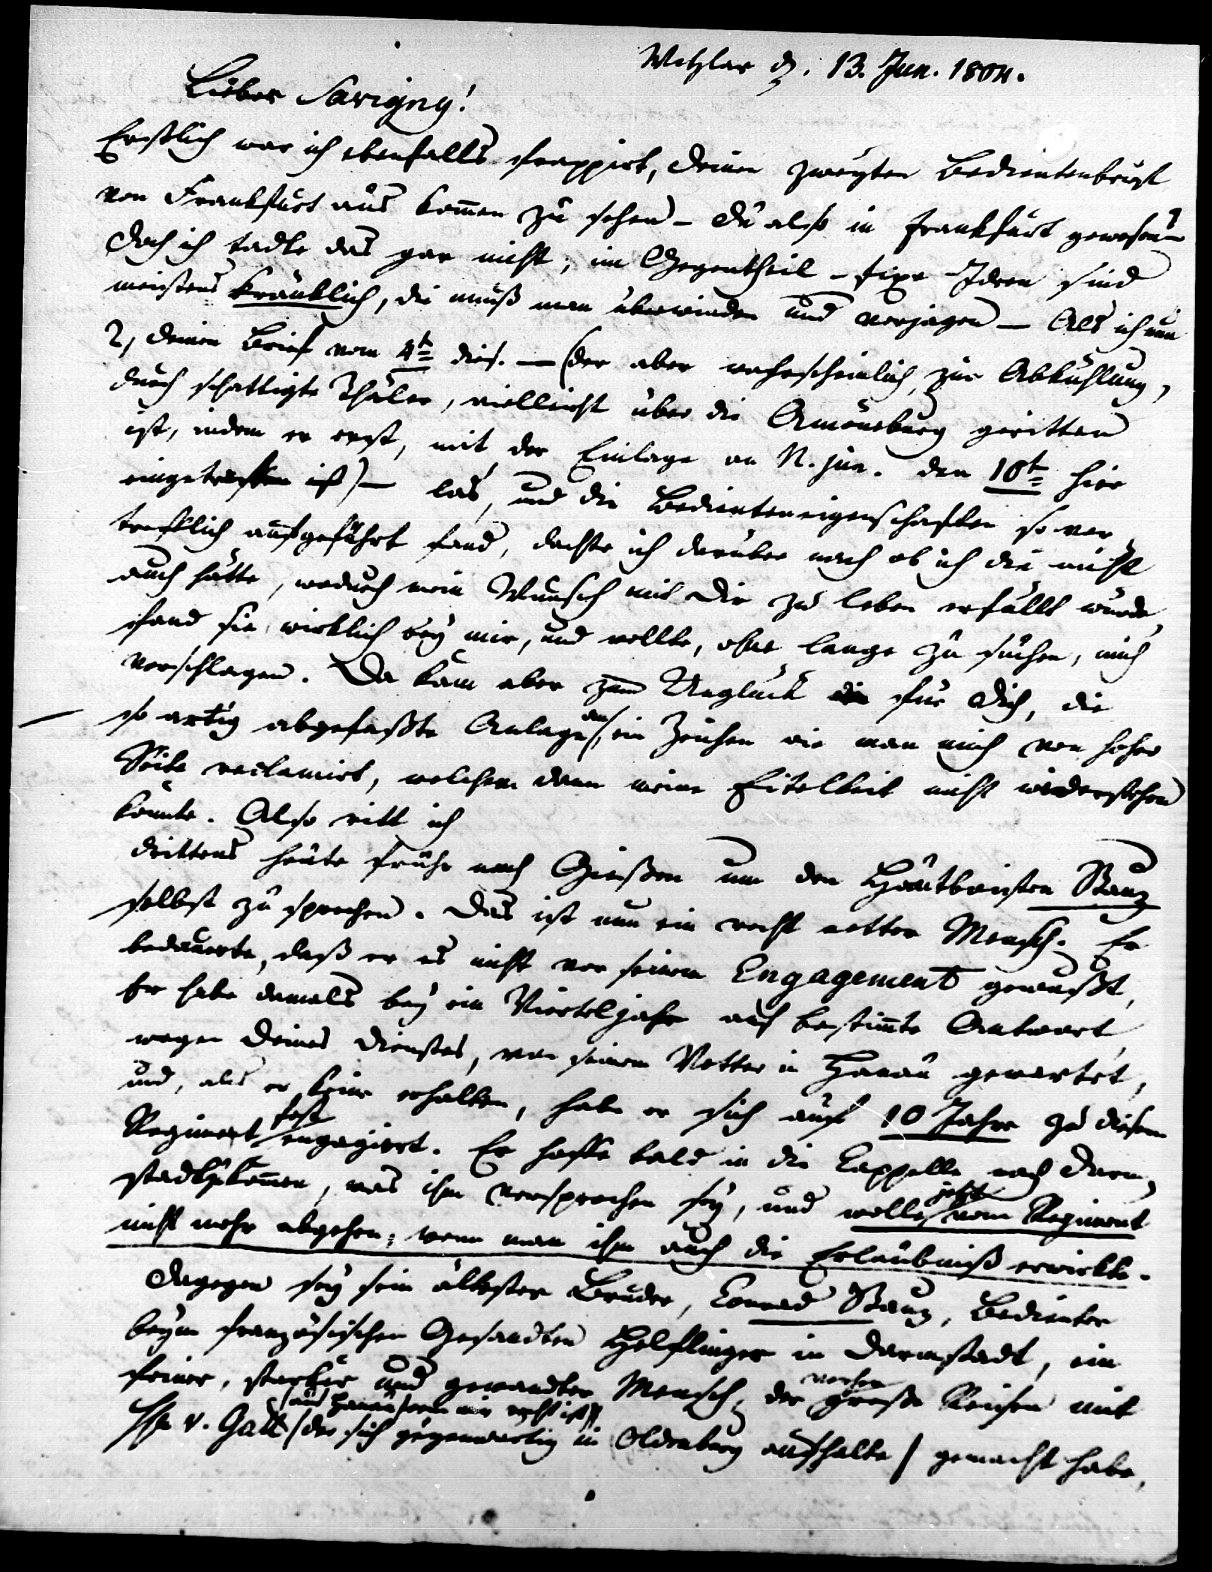 Wetzlar d. 13. Jun. 1804.
Lieber Savigny!
Erstlich war ich ebenfalls frappirt, deinen zweyten Bedientenbrief
von Frankfurt aus kommen zu sehen – du also in Frankfurt gewesen?
doch ich tadle das gar nicht, im Gegentheil – fixe Ideen sind
meistens kränklich, die muß man überwinden und verjagen – Als ich nun
2, deinen Brief vom 4t dies. – (der aber wahrscheinlich, zur Abkühlung,
durch schattigte Thäler, vielleicht über die Amöneburg geritten
ist, indem er erst, mit der Einlage an N. jun. den 10t hier
eingetroffen ist) – las, und die Bedienteneigenschaften so vor
trefflich aufgeführt fand, dachte ich darüber nach ob ich die nicht
auch hätte, wodurch mein Wunsch mit dir zu leben erfüllt würde,
fand sie wirklich bey mir, und wollte, ohne lange zu suchen, mich
vorschlagen. Da kam aber zum Unglück für dich, die
so artig abgefaßte Anlage an, ein Zeichen wie man mich von hoher
Seite reclamirt, welchem dann meine Eitelkeit nicht widerstehen
konnte. Also ritt ich
drittens heute früh nach Gießen um den Hautboisten Stanz
selbst zu sprechen. Das ist nun ein recht netter Mensch. Er
bedauerte, daß er es nicht vor seinem Engagement gewußt,
Er habe damals bey ein Vierteljahr auf bestimmte Antwort,
wegen deines Dienstes, von seinem Vetter in Hanau gewartet,
und, als er keine erhalten, habe er sich auf 10 Jahre zu diesem
Regiment fest engagirt. Er hoffe bald in die Cappelle nach Darm
stadt zu kommen, was ihm versprochen sey, und wolle jetzt vom Regiment
nicht mehr abgehen, wenn man ihm auch die Erlaubniß erwirkte.
Dagegen sey sein ältester Bruder, Conrad Stanz, Bedienter
beym französischen Gesandten Helflinger in Darmstadt, ein
feiner, starker und gewandter Mensch, der vorher große Reisen mit
Hr v. Gall (aus Hanau wenn mir recht ist) (der sich gegenwärtig in Oldenburg aufhalte) gemacht habe,